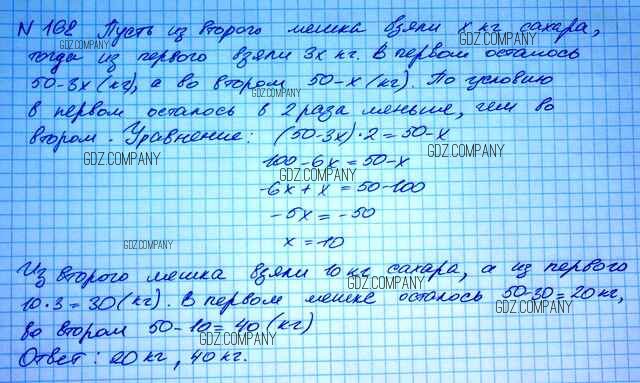 N 168 Пусть из второго мешка взяли x кг сахара,
GDZ.COMPANY GDZ.COMPANY
тогда из первого взяли 3x кг. В первом осталось
50-3x (кг), а во втором 50-x (кг). По условию
GDZ.COMPANY
в первом осталось в 2 раза меньше, чем во
втором. Уравнение: (50-3x)·2=50-x
GDZ.COMPANY GDZ.COMPANY
100-6x=50-x
GDZ.COMPANY
-6x+x=50-100
-5x=-50
GDZ.COMPANY
x=10
Из второго мешка взяли 10 кг сахара, а из первого
GDZ.COMPANY
10·3=30(кг). В первом мешке осталось 50-30=20кг,
GDZ.COMPANY
во втором 50-10=40(кг)
GDZ.COMPANY
Ответ: 20кг, 40кг.